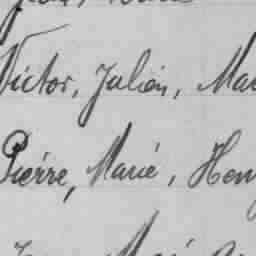 Victor, Julien, Mar
Pierre, Marie, Hen